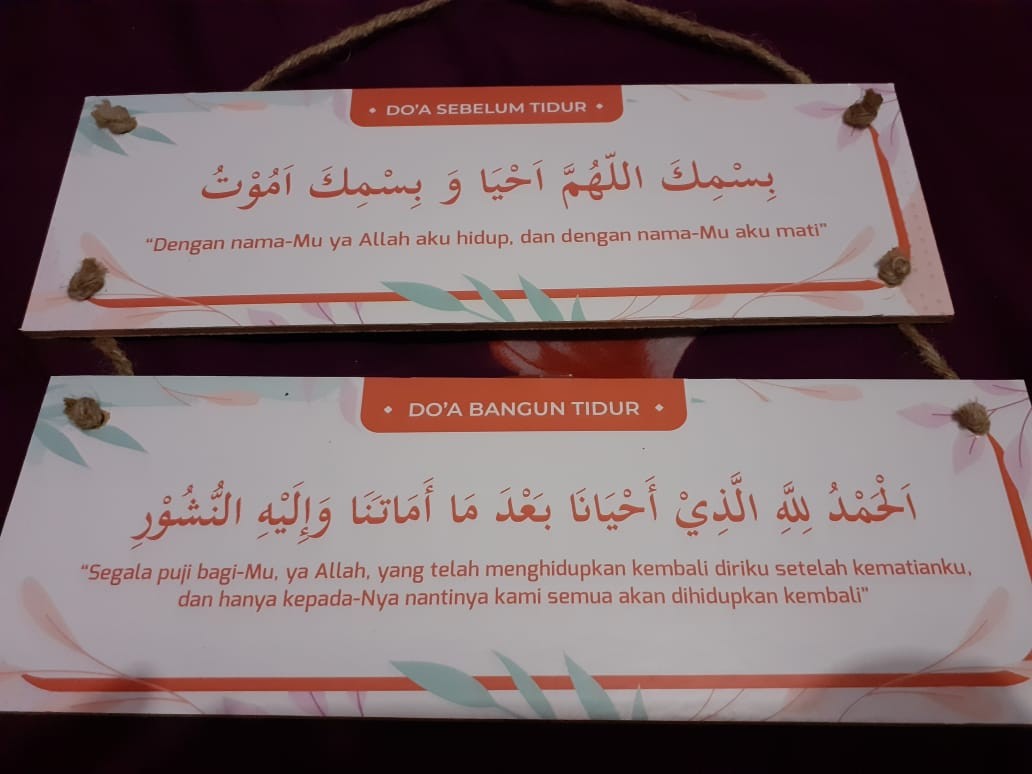 DO'A SEBELUM TIDUR
بِسْمِكَ اللّٰهُمَّ اَحْيَا وَ بِسْمِكَ اَمُوْتُ
“Dengan nama-Mu ya Allah aku hidup, dan dengan nama-Mu aku mati”
DO'A BANGUN TIDUR
اَلْحَمْدُ لِلَّهِ الَّذِيْ أَحْيَانَا بَعْدَ مَا أَمَاتَنَا وَإِلَيْهِ النُّشُوْرِ
“Segala puji bagi-Mu, ya Allah, yang telah menghidupkan kembali diriku setelah kematianku,
dan hanya kepada-Nya nantinya kami semua akan dihidupkan kembali”